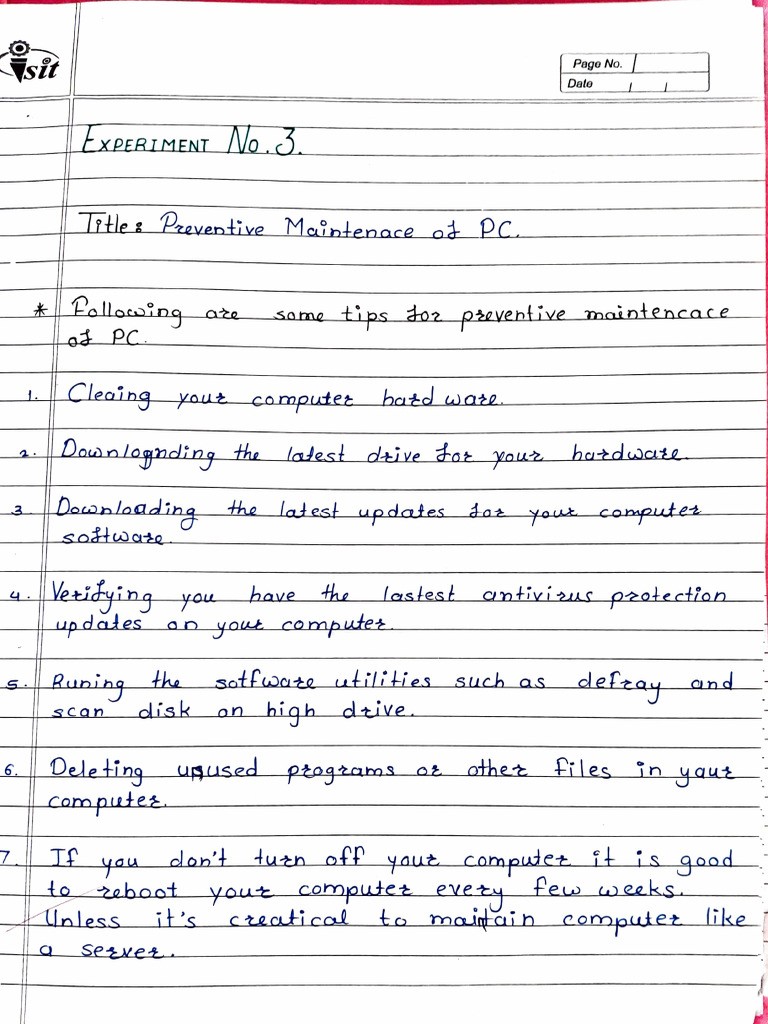 isit
Page No.
Date
EXPERIMENT No. 3.
Title: Preventive Maintenace of PC.
* Following are some tips for preventive maintencace
of PC.
1. Cleaing your computer hard ware.
2. Downlognding the latest drive for your hardware.
3. Downloading the latest updates for your computer
software.
4. Verifying you have the lastest antivirus protection
updates on your computer.
5. Runing the sotfware utilities such as defray and
scan disk on high drive.
6. Deleting unused programs or other files in your
computer.
7. If you don't turn off your computer it is good
to reboot your computer every few weeks.
Unless it's creatical to maintain computer like
a server.